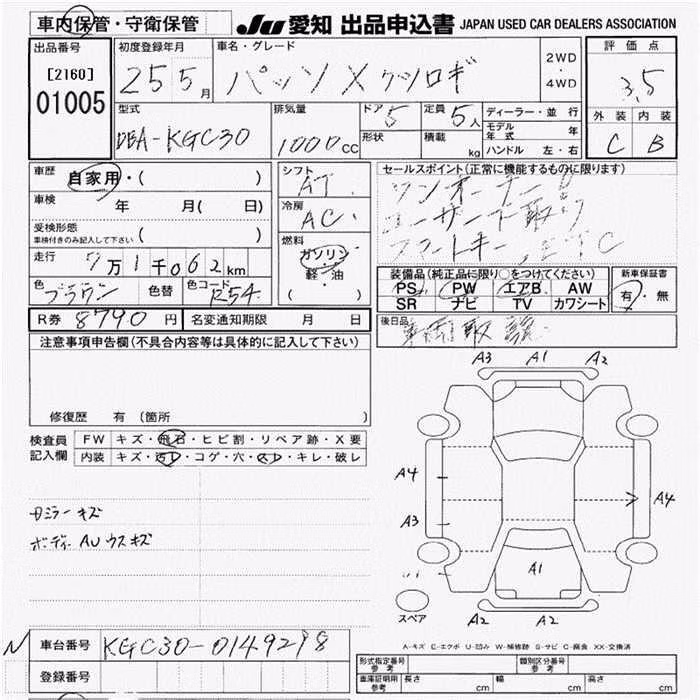 車内保管・守衛保管
JU 愛知 出品申込書 JAPAN USED CAR DEALERS ASSOCIATION
出品番号
[2160]
01005
初度登録年月
25 5月
車名・グレード
パッソ X クツロギ
2WD
・
4WD
評価点
3.5
外装 内装
C B
型式
DBA-KGC30
排気量
1000cc
ドア 5
形状
定員 5人
積載 kg
ディーラー・並行
モデル年式 年
ハンドル 左・右
車歴
自家用・( )
車検
年 月( 日)
受検形態
車検付きのみ記入して下さい ( )
走行 7万1千062km
色 ブラウン 色替 色コード R54
シフト
AT
冷房
AC
燃料
ガソリン
軽・油
( )
セールスポイント(正常に機能するものに限ります)
ワンオーナー
ユーザー下取り
スマートキー ETC
装備品(純正品に限り○をつけてください)
PS PW エアB AW
SR ナビ TV カワシート
新車保証書
有・無
R券 8790 円 名変通知期限 月 日
後日品
取説
注意事項申告欄(不具合内容等は具体的に記入して下さい)
修復歴 有 (箇所 )
検査員記入欄
FW キズ・飛石・ヒビ割・リペア跡・X要
内装 キズ・汚レ・コゲ・穴・スレ・キレ・破レ
ミラー キズ
ボディー AU ウスキズ
A3 A1 A2
A4
A4
A3
A1
A2 A2
スペア
A-キズ E-エクボ U-凹み W-補修跡 S-サビ C-腐食 XX-交換済
N
車台番号 KGC30-0149298
登録番号
型式指定番号 参考 類別区分番号 参考
車庫証明用 参考 長さ cm 幅 cm 高さ cm